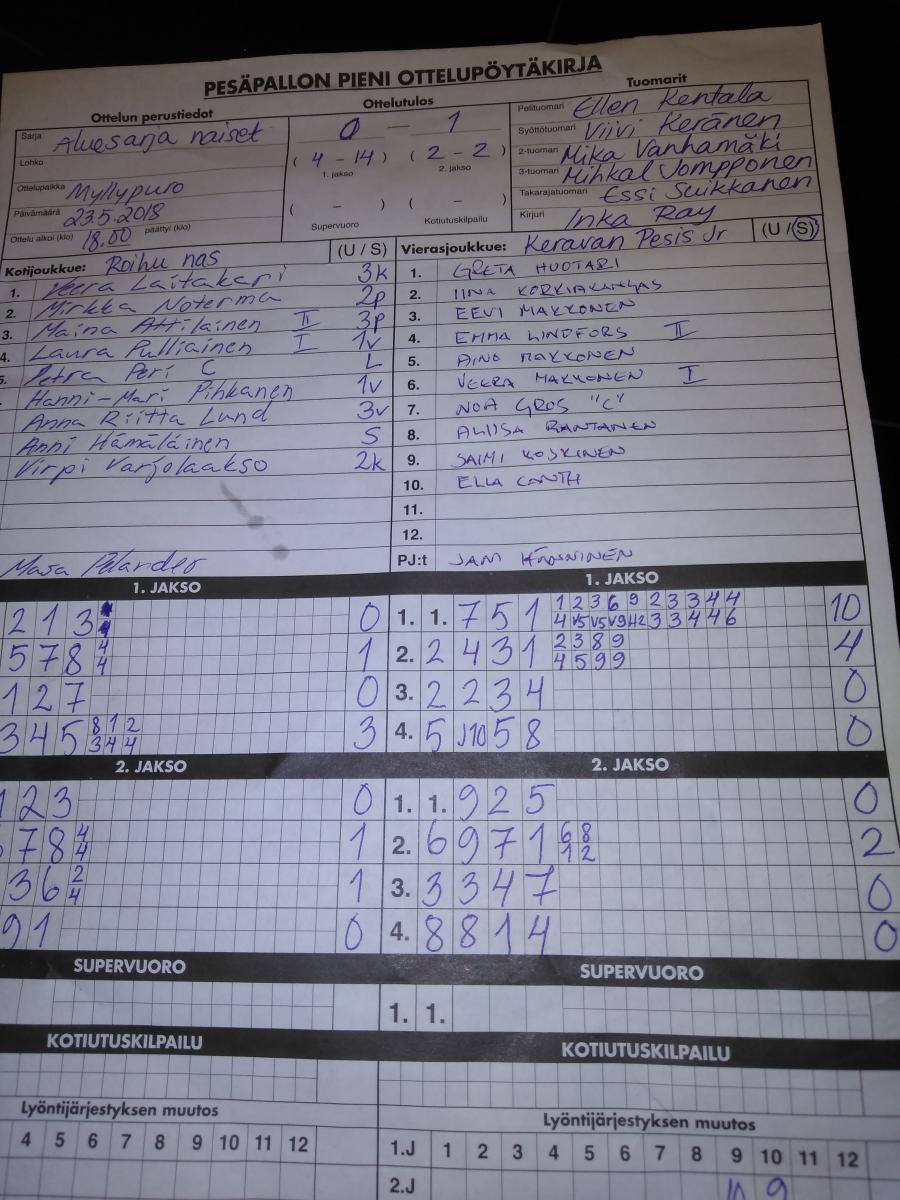 PESÄPALLON PIENI OTTELUPÖYTÄKIRJA
Ottelun perustiedot
Sarja Aluesarja naiset
Lohko
Ottelupaikka Myllypuro
Päivämäärä 23.5.2018
Ottelu alkoi (klo) 18.00 päättyi (klo)
Ottelutulos
0 — 1
( 4 - 14 ) ( 2 - 2 )
1. jakso 2. jakso
( - ) ( - )
Supervuoro Kotiutuskilpailu
Tuomarit
Pelituomari Ellen Kentala
Syöttötuomari Viivi Keränen
2-tuomari Mika Vanhamäki
3-tuomari Mihkal Vompponen
Takarajatuomari Essi Suikkanen
Kirjuri Inka Ray
Kotijoukkue: Roihu nas (U / S)
1. Veera Laitakari 3k
2. Mirkka Noterma 2p
3. Maina Attilainen II 3p
4. Laura Pulliainen I 1v
5. Petra Peri C L
Hanni-Mari Pihkanen 1v
Anna Riitta Lund 3v
Anni Hämäläinen S
Virpi Varjolaakso 2k
Masa Pelander
Vierasjoukkue: Keravan Pesis Jr (U / S)
1. GRETA HUOTARI
2. IINA KORKIAKANGAS
3. EEVI MAKKONEN
4. EMMA LINDFORS II
5. AINO MAKKONEN
6. VEERA MAKKONEN I
7. NOA GROS "C"
8. ALIISA RANTANEN
9. SAIMI KOSKINEN
10. ELLA CANTH
11.
12.
PJ:t JANI HÄNNINEN
1. JAKSO
2 1 3 0
5 7 8 4 4 1
1 2 7 0
3 4 5 8 1 2 3
3 4 4
2. JAKSO
1 2 3 0
7 8 4 4 1
3 6 2 4 1
9 1 0
SUPERVUORO
KOTIUTUSKILPAILU
Lyöntijärjestyksen muutos
4 5 6 7 8 9 10 11 12
1. JAKSO
1. 1. 7 5 1 1 2 3 6 9 2 3 3 4 4 10
4 V5 V5 V9 H2 3 3 4 4 6
2. 2 4 3 1 2 3 8 9 4
4 5 9 9
3. 2 2 3 4 0
4. 5 J10 5 8 0
2. JAKSO
1. 1. 9 2 5 0
2. 6 9 7 1 6 8 2
1 2
3. 3 3 4 7 0
4. 8 8 1 4 0
SUPERVUORO
1. 1.
KOTIUTUSKILPAILU
Lyöntijärjestyksen muutos
1.J 1 2 3 4 5 6 7 8 9 10 11 12
2.J 10 9